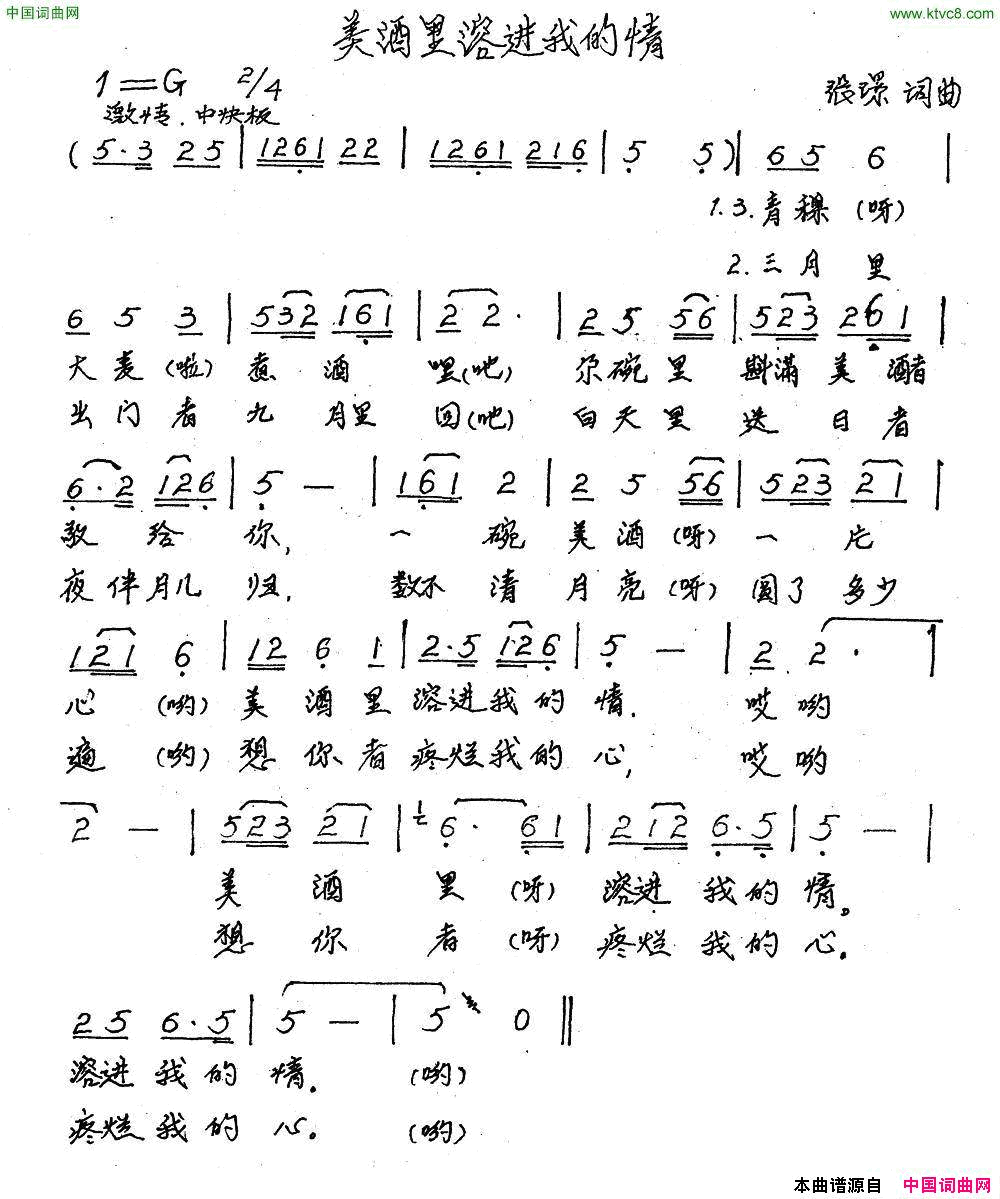 中国词曲网 www.ktvc8.com
美酒里溶进我的情
1=G 2/4 张璟 词曲
激情.中快板
( 5·3 25 | 1261 22 | 1261 216 | 5 5 ) | 65 6 |
1.3.青稞(呀)
2.三月里
6 5 3 | 532 161 | 2 2· | 2 5 56 | 523 261 |
大麦(啦)煮酒嘿(吔) 尕碗里斟满美酒
出门者九月里回(吔) 白天里送日者
6·2 126 | 5 — | 161 2 | 2 5 56 | 523 21 |
敬给你, 一碗美酒(呀)一片
夜伴月儿归, 数不清月亮(呀)圆了多少
121 6 | 12 6 1 | 2·5 126 | 5 — | 2 2· |
心(哟)美酒里溶进我的情. 哎哟
遍(哟)想你者疼烂我的心, 哎哟
2 — | 523 21 | 1 6· 61 | 212 6·5 | 5 — |
美酒里(呀)溶进我的情。
想你者(呀)疼烂我的心.
25 6·5 | 5 — | 5 0 ‖
溶进我的情. (哟)
疼烂我的心. (哟)
本曲谱源自 中国词曲网